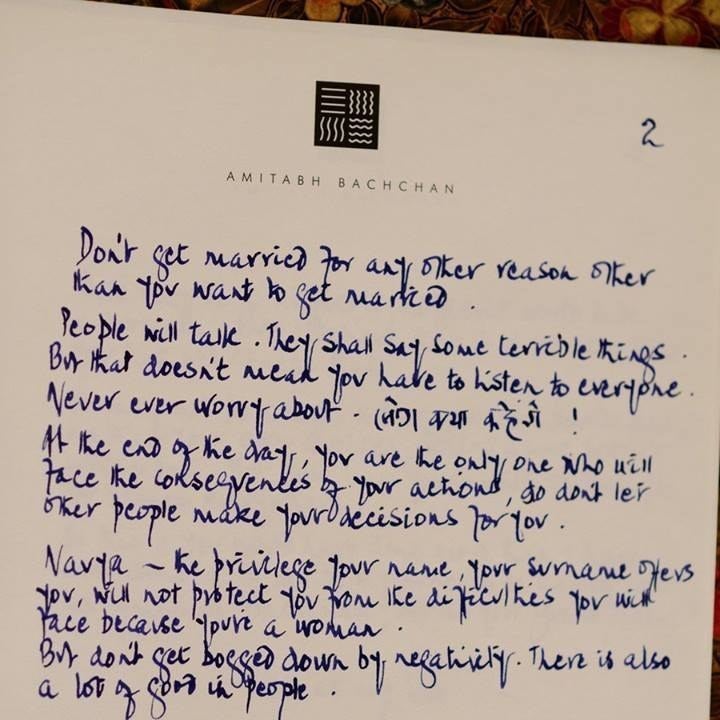 2
AMITABH BACHCHAN
Don't get married for any other reason other
than you want to get married.
People will talk. They shall say some terrible things.
But that doesn't mean you have to listen to everyone.
Never ever worry about - लोग क्या कहेंगे !
At the end of the day, you are the only one who will
face the consequences of your actions, so don't let
other people make your decisions for you.
Navya - the privilege your name, your surname offers
you, will not protect you from the difficulties you will
face because you're a woman.
But don't get bogged down by negativity. There is also
a lot of good in people.